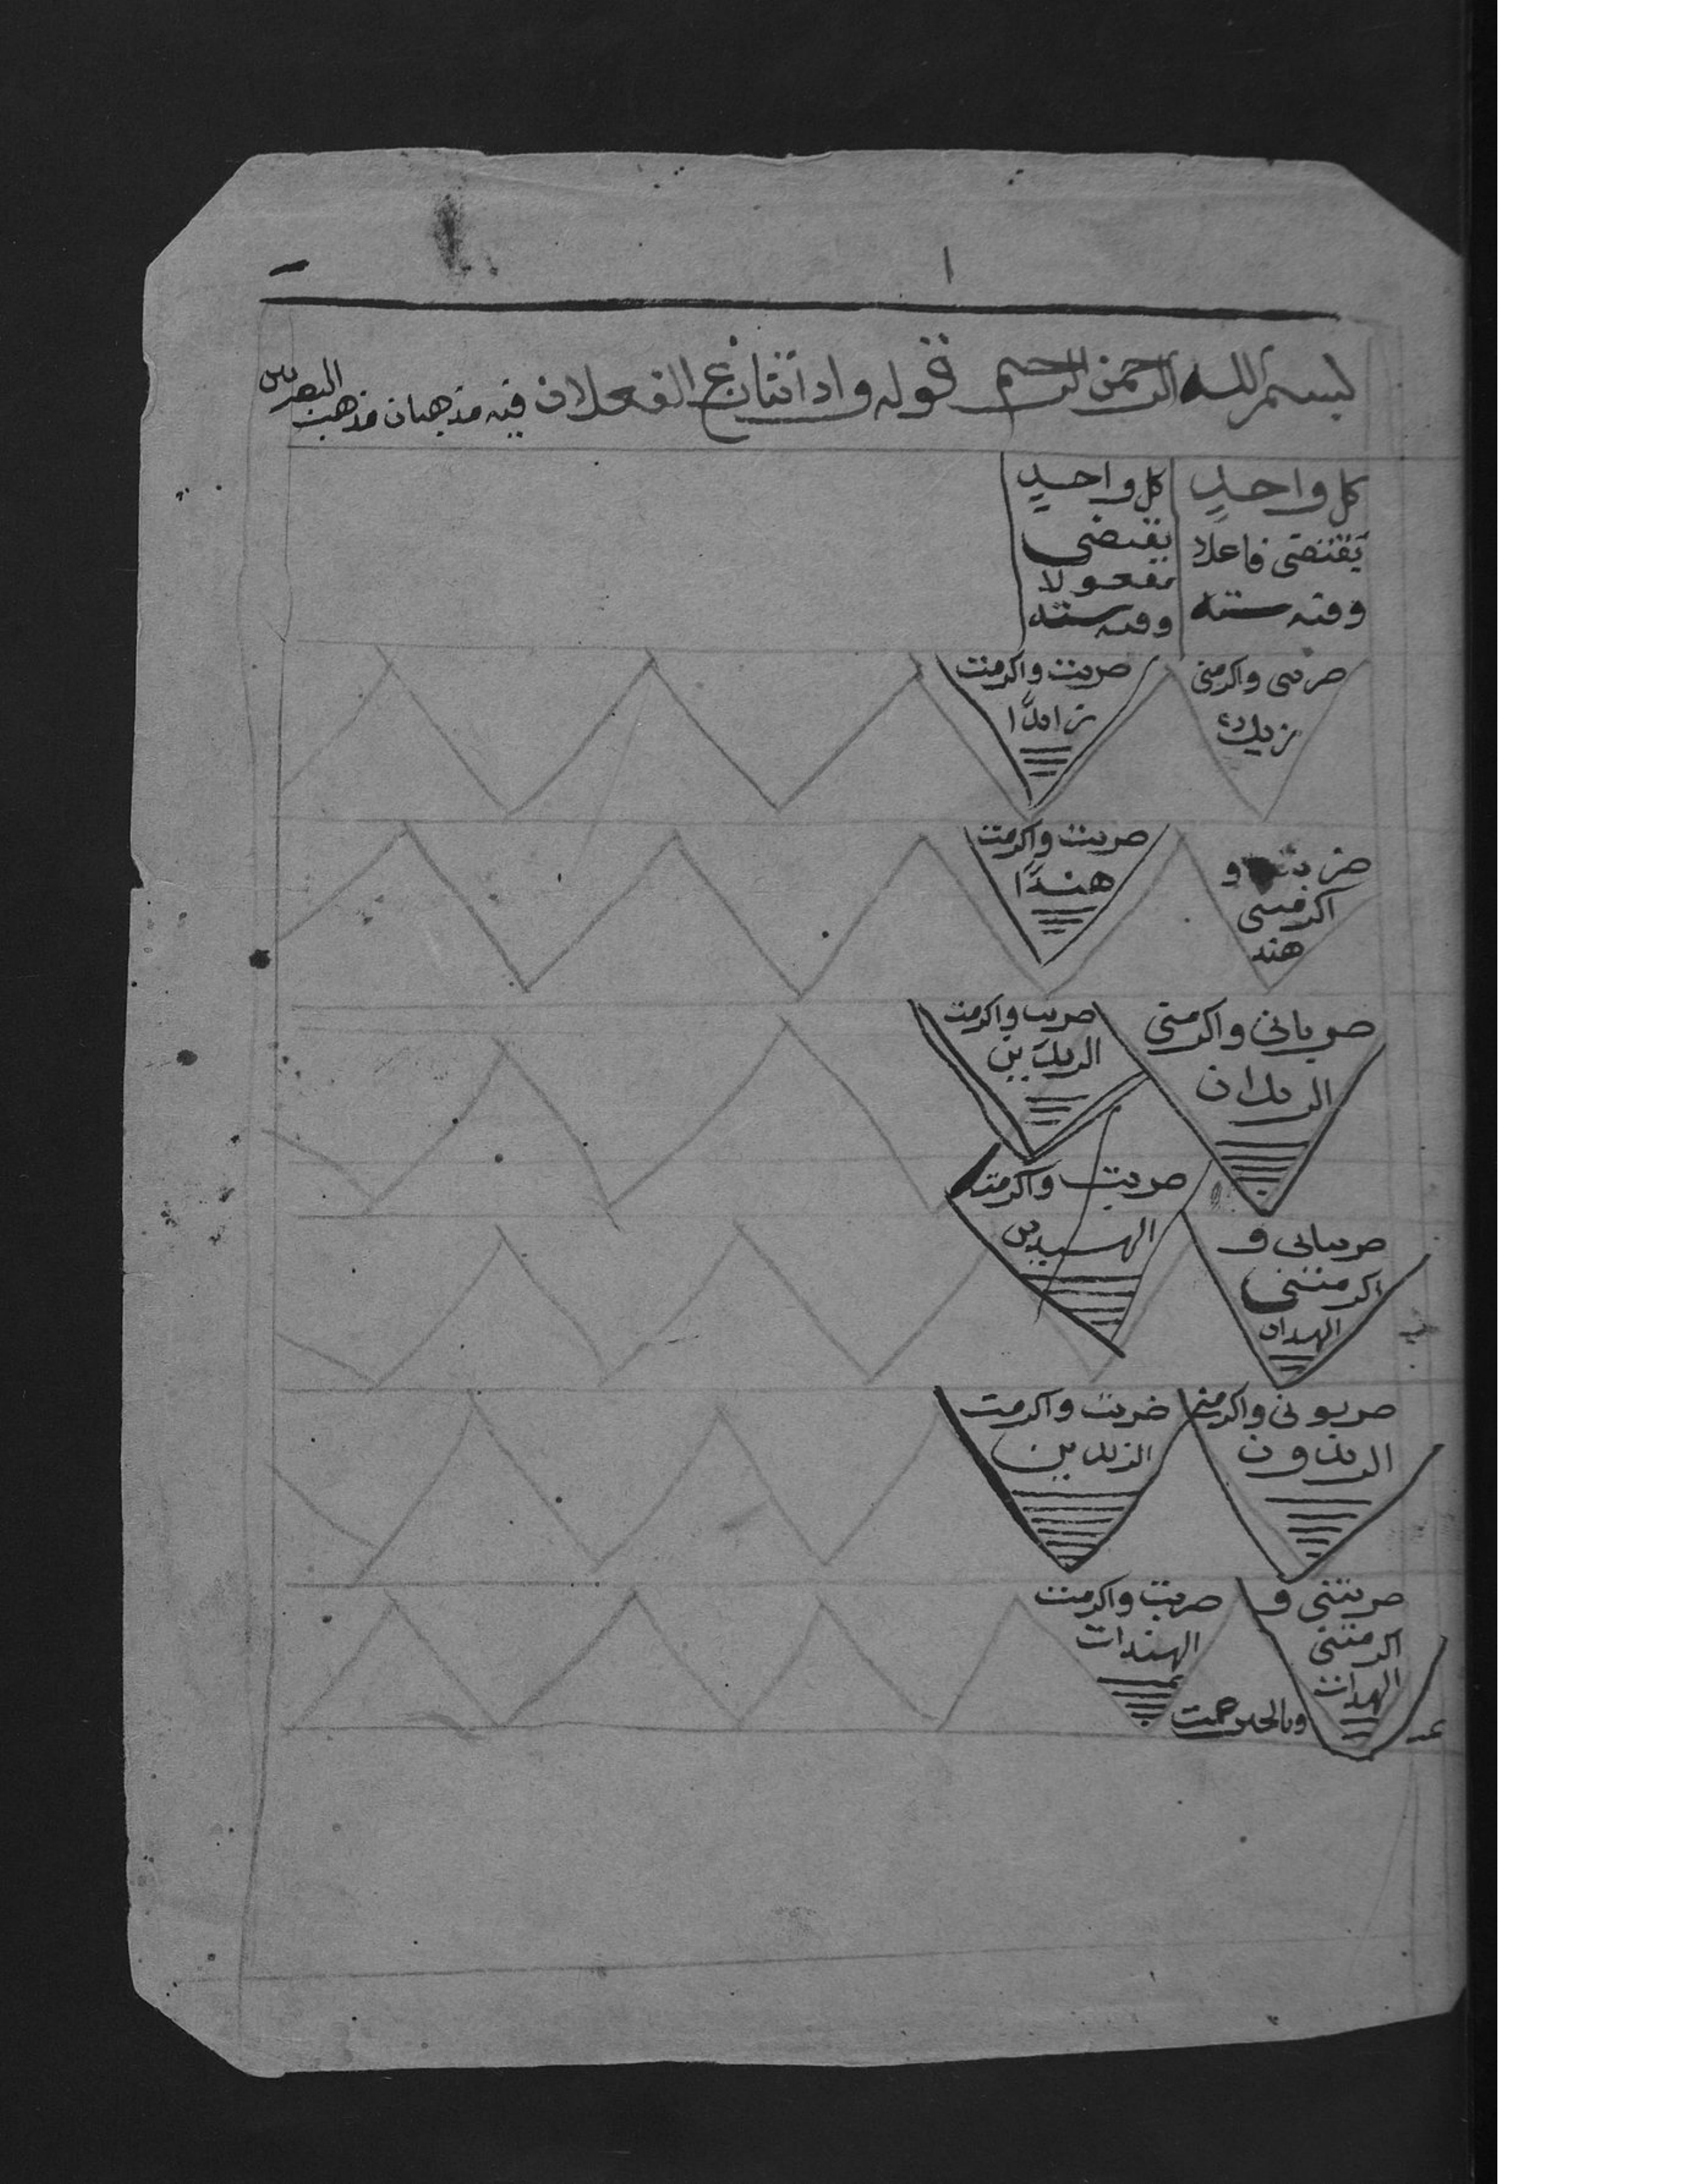 بسم الله الرحمن الرحيم قوله واذا تنازع الفعلان فيه مذهبان مذهب البصريين
كل واحدٍ
يقتضى فاعلا
وفيه ستة
كل واحدٍ
يقتضى
مفعولا
وفيه ستة
ضربنى واكرمنى
زيدٌ
ضربت واكرمت
زيدًا
واكرمتنى
هند
ضربت واكرمت
هندًا
ضربانى واكرمنى
الزيدان
ضربت واكرمت
الزيدين
ضربت واكرمت
الهندين
ضربتانى و
اكرمتنى
الهندان
ضربونى واكرمنى
الزيدون
ضربت واكرمت
الزيدين
ضربننى و
اكرمتنى
الهندات
ضربت واكرمت
الهندات